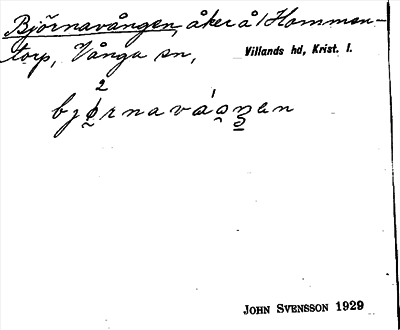 Björnavången, åker å Hommen-
torp, Vånga sn, Villands hd, Krist. l.
2
bjø̰rnavá'o̰n̲en
JOHN SVENSSON 1929